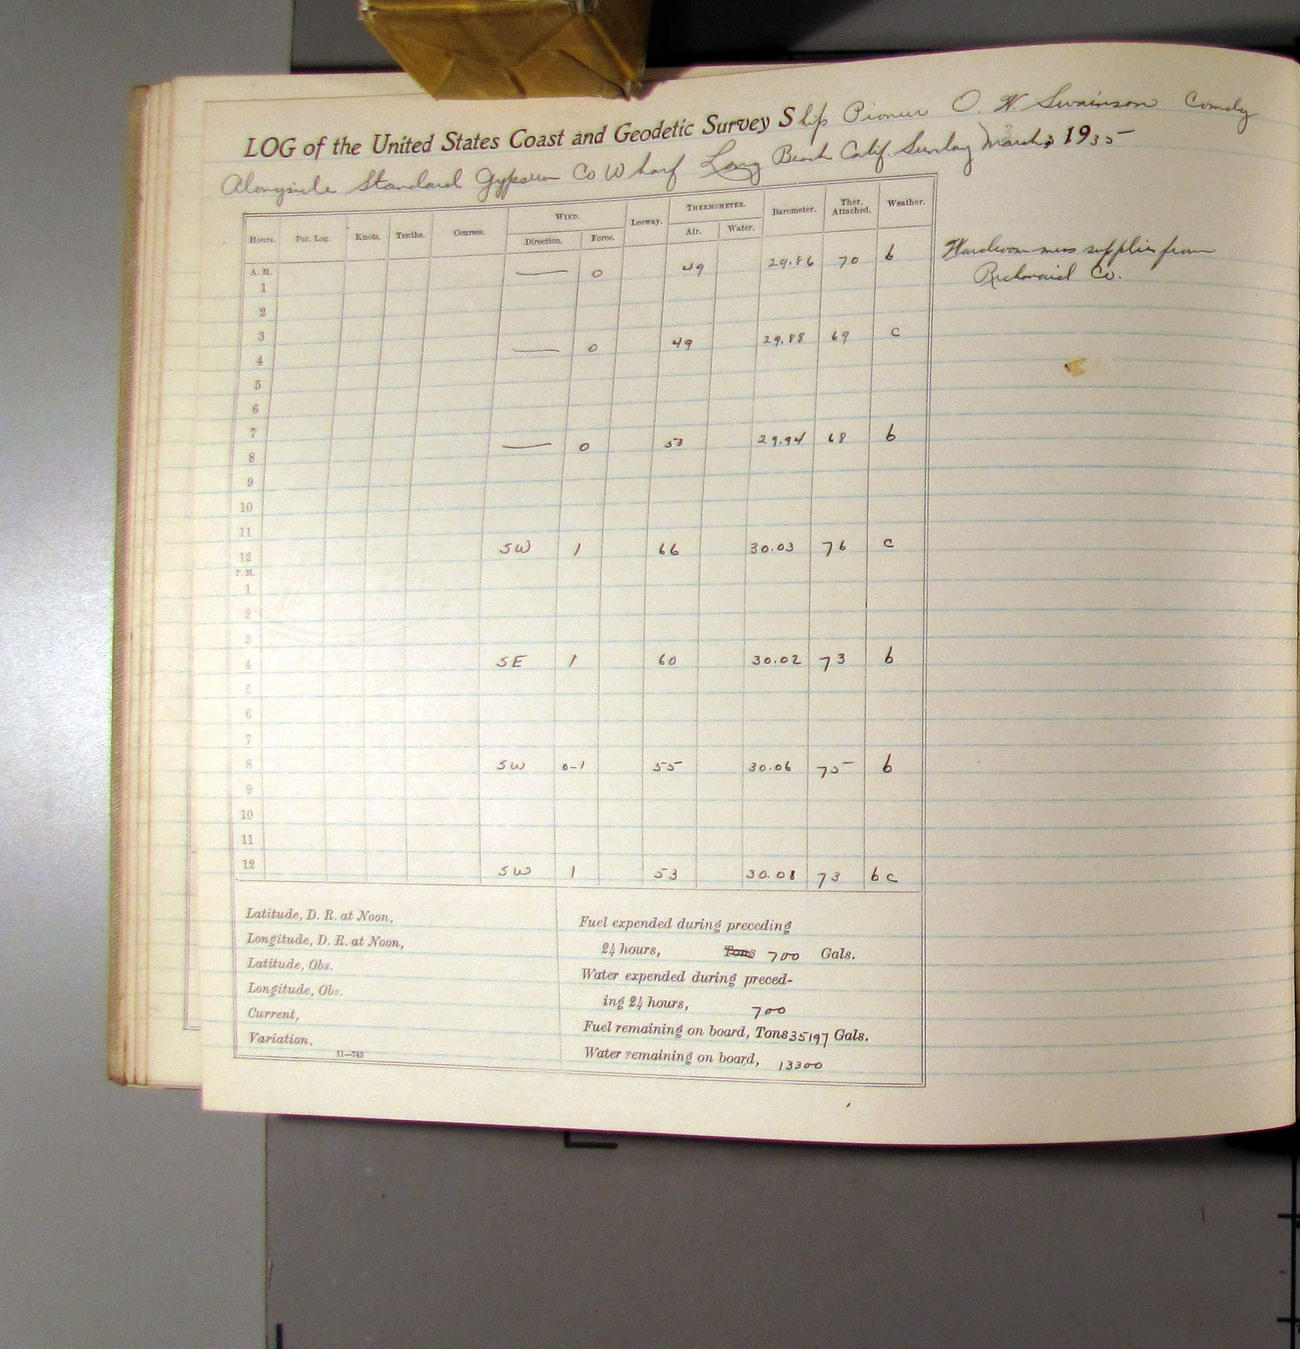 LOG of the United States Coast and Geodetic Survey Ship Pioneer O. W. Swainson Comdg
Alongside Standard Gypsum Co Wharf Long Beach Calif. Sunday March 3 1935
Hours. Pat. Log. Knots. Tenths. Courses. WIND. Leeway. THERMOMETER. Barometer. Ther. Attached. Weather.
Direction. Force. Air. Water.
A. M. — 0 49 29.86 70 b
Wardroom mess supplies from
1
Co.
2
3
— 0 49 29.88 69 c
4
5
6
7
— 0 53 29.94 68 b
8
9
10
11
12 SW 1 66 30.03 76 c
P. M.
1
2
3
4 SE 1 60 30.02 73 b
5
6
7
8 SW 0-1 55 30.06 75 b
9
10
11
12 SW 1 53 30.08 73 bc
Latitude, D. R. at Noon,
Longitude, D. R. at Noon,
Latitude, Obs.
Longitude, Obs.
Current,
Variation,
11—743
Fuel expended during preceding
24 hours, Tons 700 Gals.
Water expended during preced-
ing 24 hours, 700
Fuel remaining on board, Tons 35197 Gals.
Water remaining on board, 13300